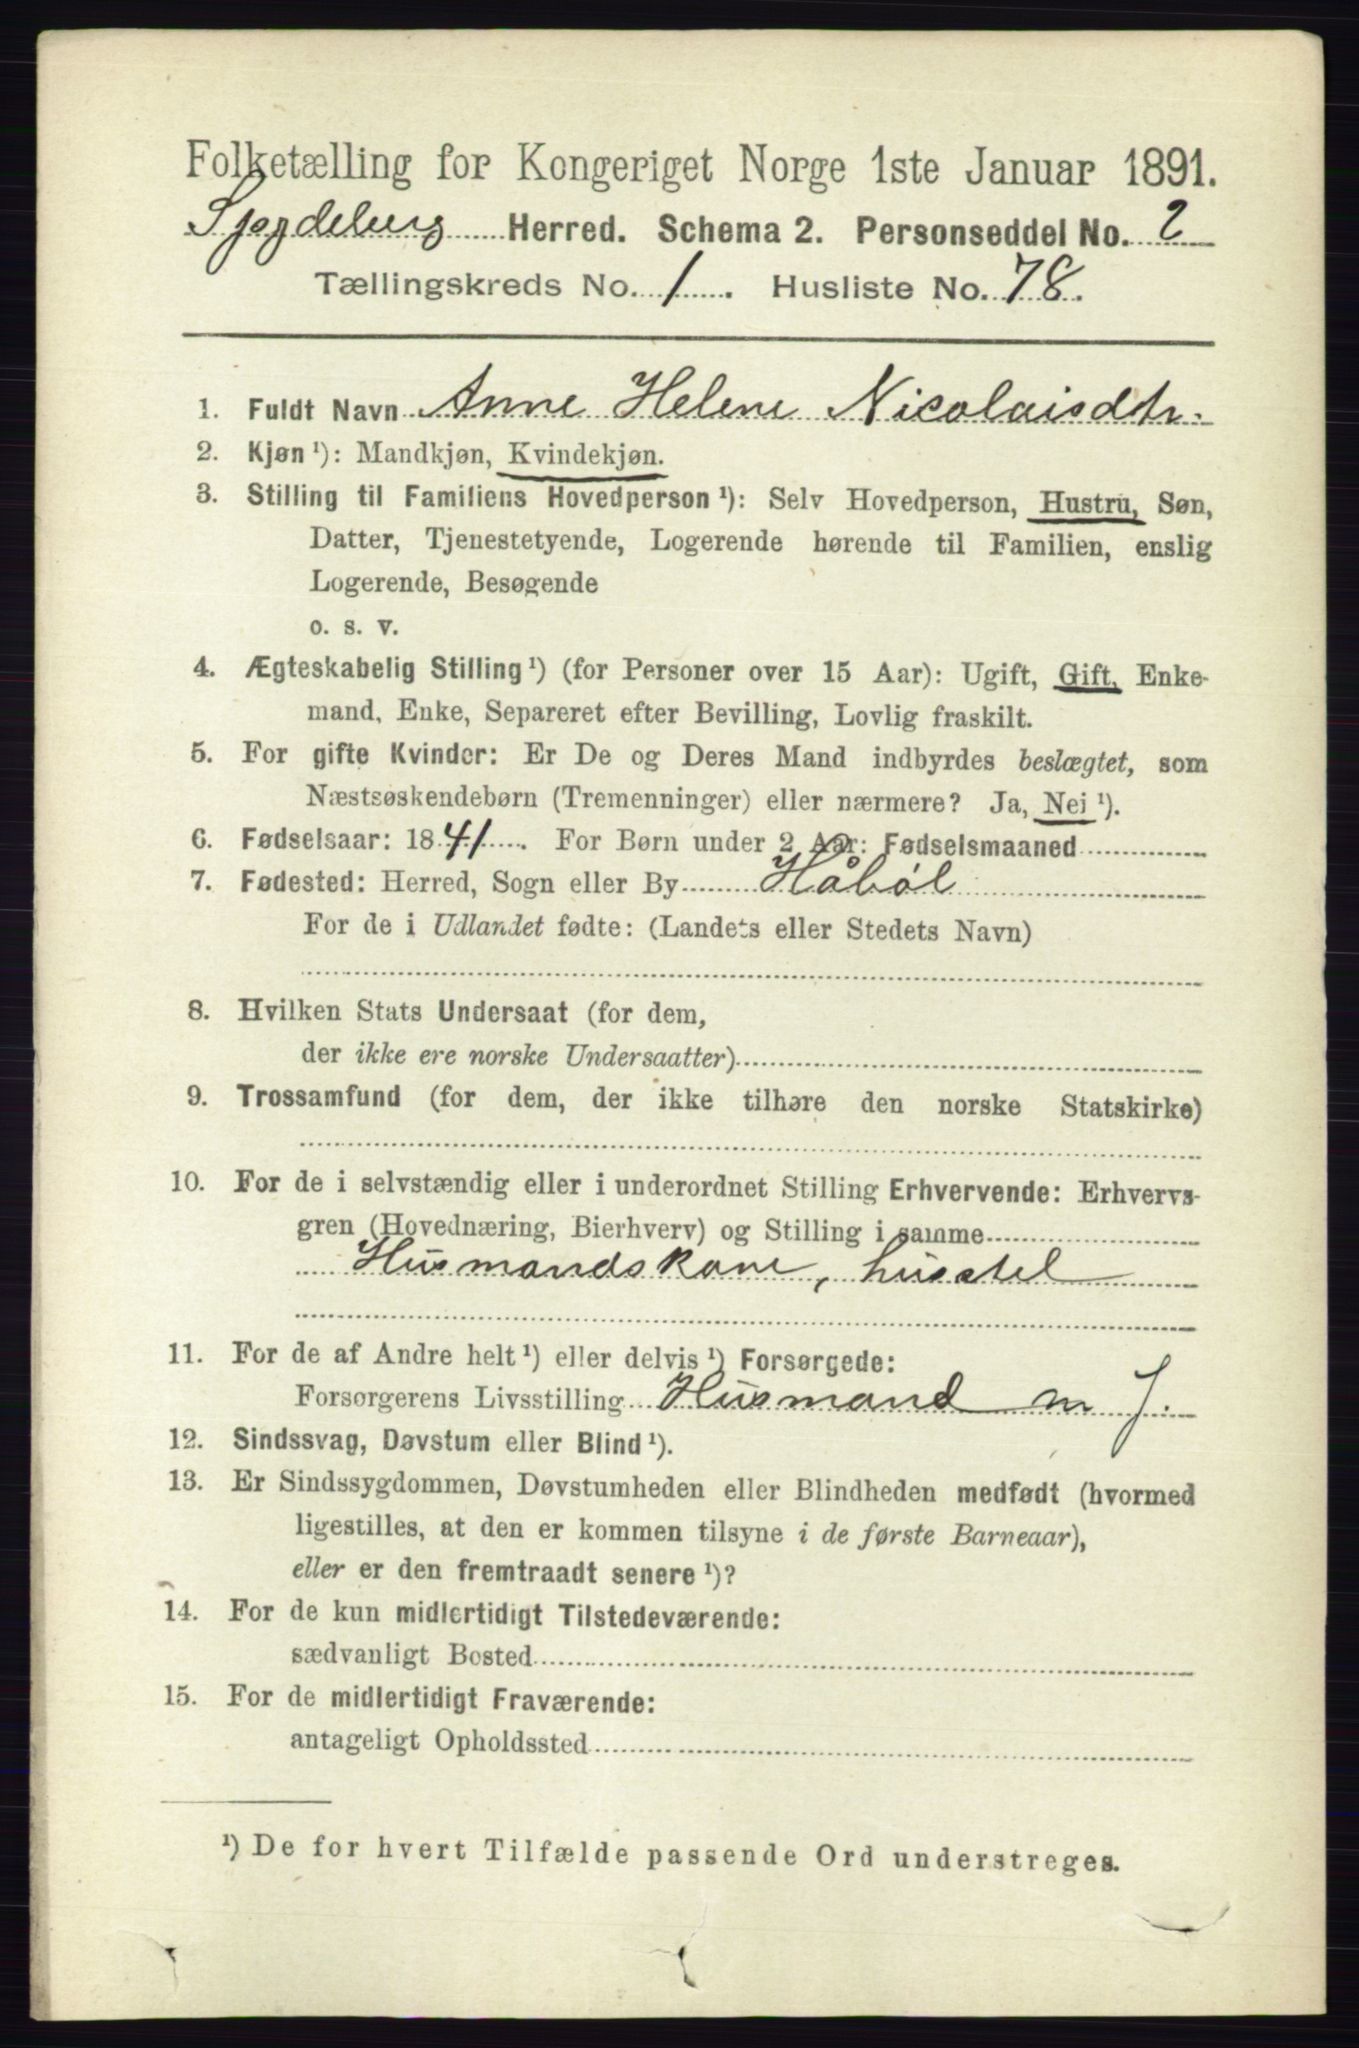 Folketælling for Kongeriget Norge 1ste Januar 1891.
Spydeberg Herred. Schema 2. Personseddel No. 2
Tællingskreds No. 1. Husliste No. 78.
1. Fuldt Navn Anne Helene Nicolaisdtr.
2. Kjøn ¹): Mandkjøn, Kvindekjøn.
3. Stilling til Familiens Hovedperson ¹): Selv Hovedperson, Hustru, Søn,
Datter, Tjenestetyende, Logerende hørende til Familien, enslig
Logerende, Besøgende
o. s. v.
4. Ægteskabelig Stilling ¹) (for Personer over 15 Aar): Ugift, Gift, Enke-
mand, Enke, Separeret efter Bevilling, Lovlig fraskilt.
5. For gifte Kvinder: Er De og Deres Mand indbyrdes beslægtet, som
Næstsøskendebørn (Tremenninger) eller nærmere? Ja, Nei ¹).
6. Fødselsaar: 1841. For Børn under 2 Aar: Fødselsmaaned
7. Fødested: Herred, Sogn eller By Håbøl
For de i Udlandet fødte: (Landets eller Stedets Navn)
8. Hvilken Stats Undersaat (for dem,
der ikke ere norske Undersaatter)
9. Trossamfund (for dem, der ikke tilhøre den norske Statskirke)
10. For de i selvstændig eller i underordnet Stilling Erhvervende: Erhvervs-
gren (Hovednæring, Bierhverv) og Stilling i samme
Husmandskone, husstel
11. For de af Andre helt ¹) eller delvis ¹) Forsørgede:
Forsørgerens Livsstilling Husmand m J.
12. Sindssvag, Døvstum eller Blind ¹).
13. Er Sindssygdommen, Døvstumheden eller Blindheden medfødt (hvormed
ligestilles, at den er kommen tilsyne i de første Barneaar),
eller er den fremtraadt senere ¹)?
14. For de kun midlertidigt Tilstedeværende:
sædvanligt Bosted
15. For de midlertidigt Fraværende:
antageligt Opholdssted
¹) De for hvert Tilfælde passende Ord understreges.